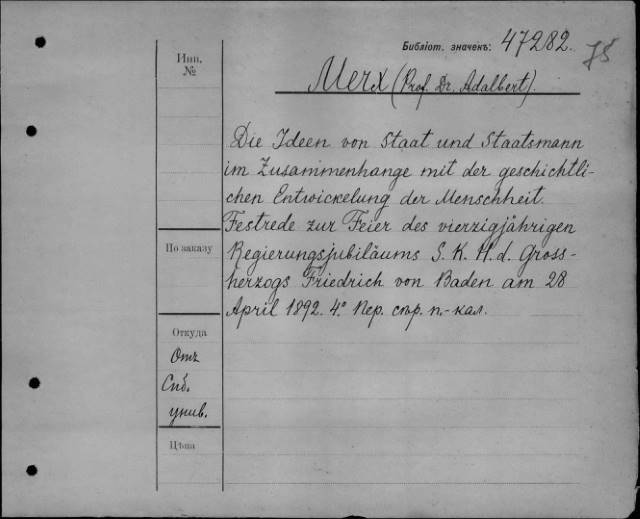 Библіот. значекъ: 47282.
Инв. №
Merx (Prof. Dr. Adalbert).
Die Ideen von Staat und Staatsmann
im Zusammenhange mit der geschichtli-
chen Entwickelung der Menschheit.
Festrede zur Feier des vierzigjährigen
По заказу
Regierungsjubiläums S. K. H. d. Gross-
herzogs Friedrich von Baden am 28
April 1892. 4° Пер. стр. п.-кал.
Откуда
Отъ
Спб.
унив.
Цѣна